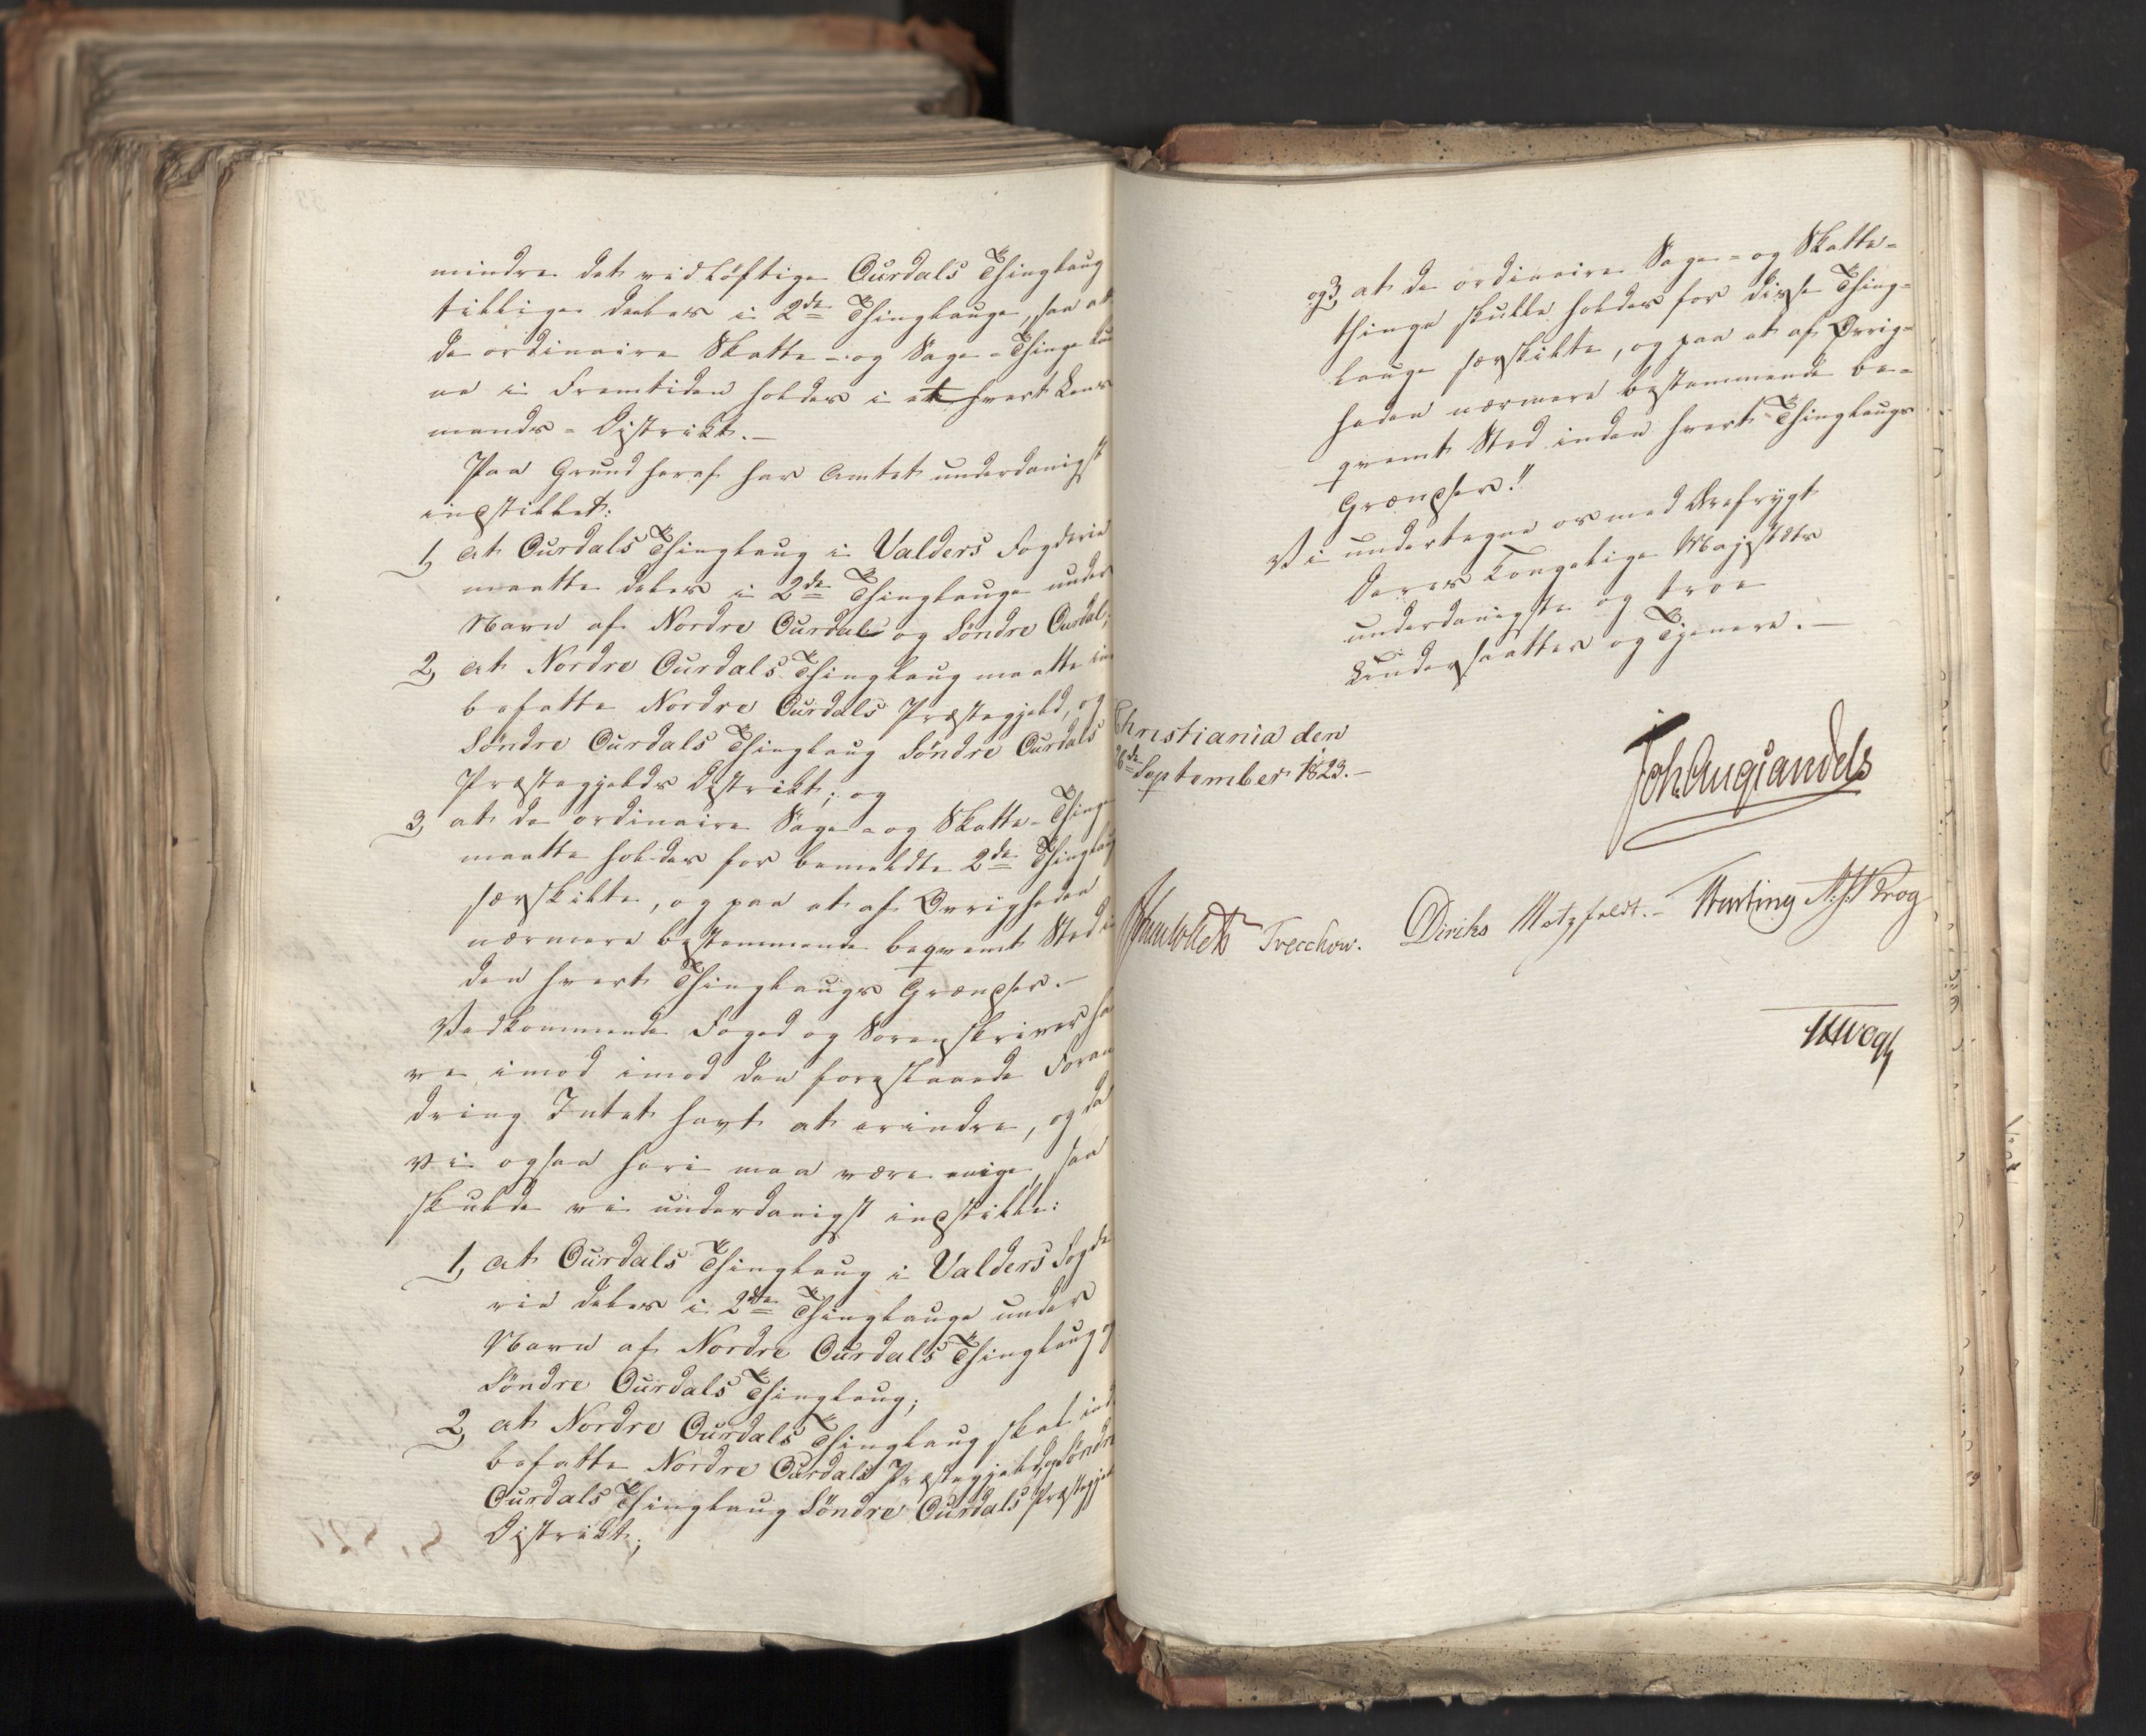 mindre det vidløftige Ourdals Thinglaug
tillige deeles i 2de Thinglauge, saa at
de ordinaire Skatte- og Sage-Thinge kun
ne i Fremtiden holdes i et hvert Lens
mands-Distrikt.-
Paa Grund heraf har Amtet underdanigst
indstillet:
1, at Ourdals Thinglaug i Valders Fogderie
maatte deles i 2de Thinglauge under
Navn af Nordre Ourdal og Söndre Ourdal;
2, at Nordre Ourdals Thinglaug maatte ind
befatte Nordre Ourdals Præstegjeld, og
Söndre Ourdals Thinglaug Söndre Ourdals
Præstegjelds Distrikt; og
3, at de ordinaire Sage- og Skatte-Thinge
maatte holdes for bemeldte 2de Thinglaug
særskilte, og paa et af Øvrigheden
nærmere bestemmende beqvemt Sted in
den hvert Thinglaugs Grændser.-
Vedkommende Foged og Sorenskriver ha
ve imod imod den forestaaende Foran
dring Intet havt at erindre, og da
vi ogsaa heri maa være enige, saa
skulde vi underdanigst indstille:
1, at Ourdals Thinglaug i Valders Fogde
rie deles i 2de Thinglauge under
Navn af Nordre Ourdals Thinglaug og
Söndre Ourdals Thinglaug;
2, at Nordre Ourdals Thinglaug skal ind
befatte Nordre Ourdals Præstegjeld, og Söndre
Ourdals Thinglaug Söndre Ourdals Præstegjel
Distrikt;
og 3, at de ordinaire Sage- og Skatte-
thinge skulle holdes for disse Thing-
lauge særskilte, og paa et af Øvrig-
heden nærmere bestemmende be-
qvemt Sted inden hvert Thinglaugs
Grændser!!
Vi undertegne os med Ærefrygt
Deres Kongelige Majestæts
underdanigste og troe
Undersaatter og Tjenere.-
Christiania den
26de September 1823.-
Joh. Aug. Sandels
Sommerhielm Treschow. Diriks Motzfeldt.- Fasting A. J. Krog